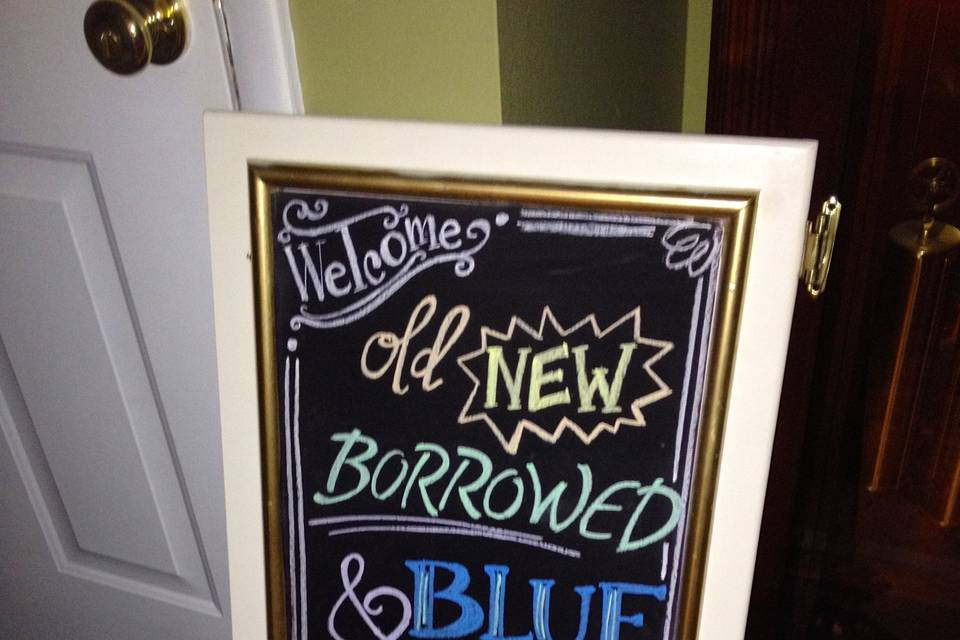 Welcome
old NEW
BORROWED
& BLUE